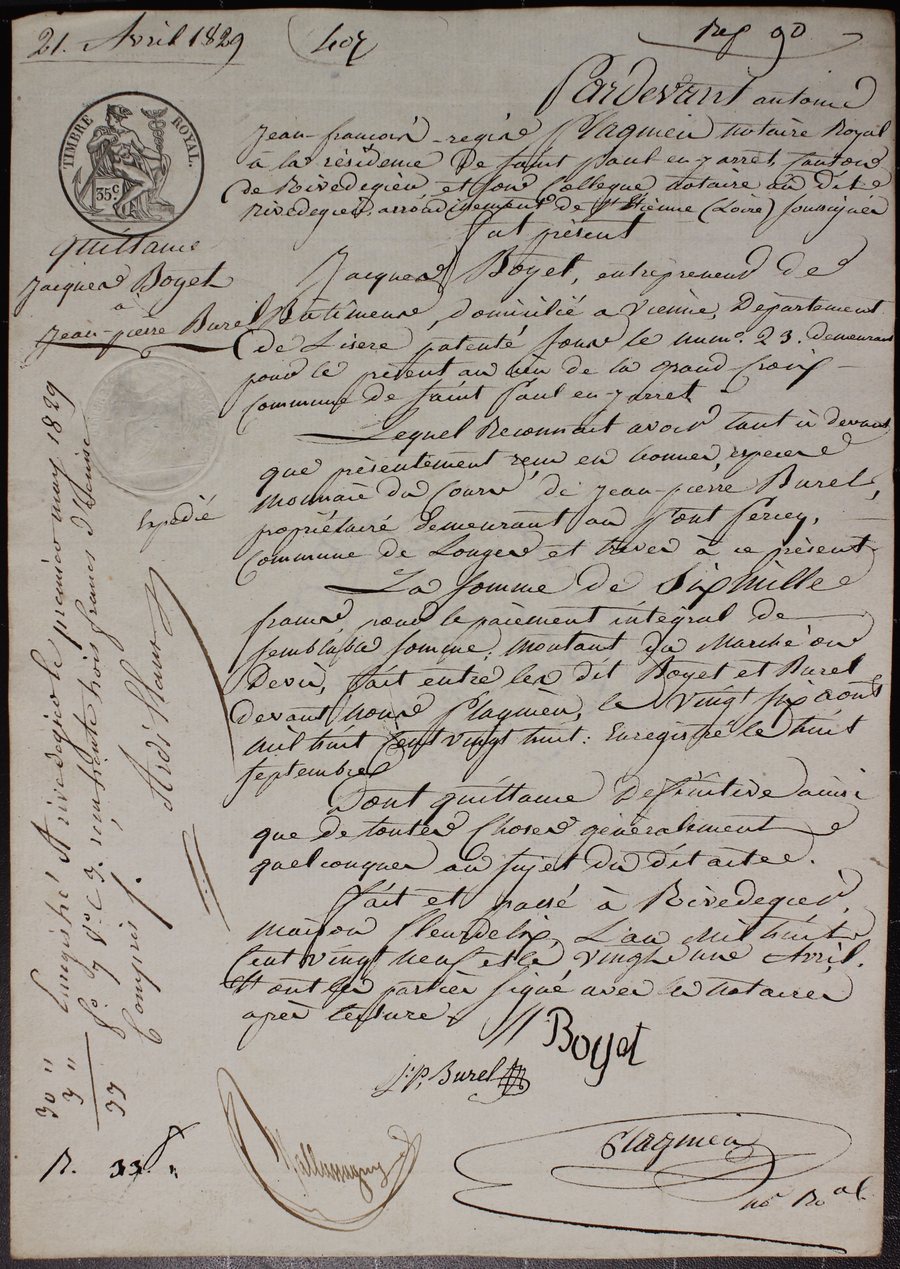 21. Avril 1829
407
Reg 90
TIMBRE ROYAL.
35 c.
Pardevant antoine
Jean-françois-regis Plagnieu notaire Royal
à la résidence de saint paul en-jarret, Canton
de Rivedegier et son Collegue notaire au dit
Rivedegier, arrondissement de St Etienne (Loire) soussignés
fut présent
quittance
Jacques Boyet
à
Jean-pierre Burel
Jacques Boyet, entrepreneur de
Bâtimens, domicilié a vienne, Département
de Lisere patenté sous le num.o 23. demeurant
pour le présent au lieu de la grand croix
commune de saint Paul en-jarret
Lequel Reconnait avoir tant ci devant
que présentement reçu en bonnes especes
monnaie du Cours, de Jean-pierre Burel,
propriétaire demeurant au
commune de Longes et treves à ce présent
Expedié
La somme de Six mille
francs pour le païement intégral de
semblable somme, montant du Marché ou
Devis, fait entre les dit Boyet et Burel
devant nous Plagnieu, le vingt six août
mil huit Cent vingt huit: Enregistré le huit
septembre
Dont quittance définitive ainsi
que de toutes Choses généralement
quelconques au sujet du dit acte.
fait et passé à Rivedegier
maison fleurdelix, L'an mil huit
Cent vingt neuf et le vingt une Avril.
Et ont les parties signé avec les notaires
après lecture
Boyet
J. P. Burel
Plagnieu
no. Roal.
Enregistré A rivedegier le premier may 1829
fo. 7 Vo. C 3. reçu trente trois francs dixieme
Compris
30 "
3 "
33
R. 33 f "